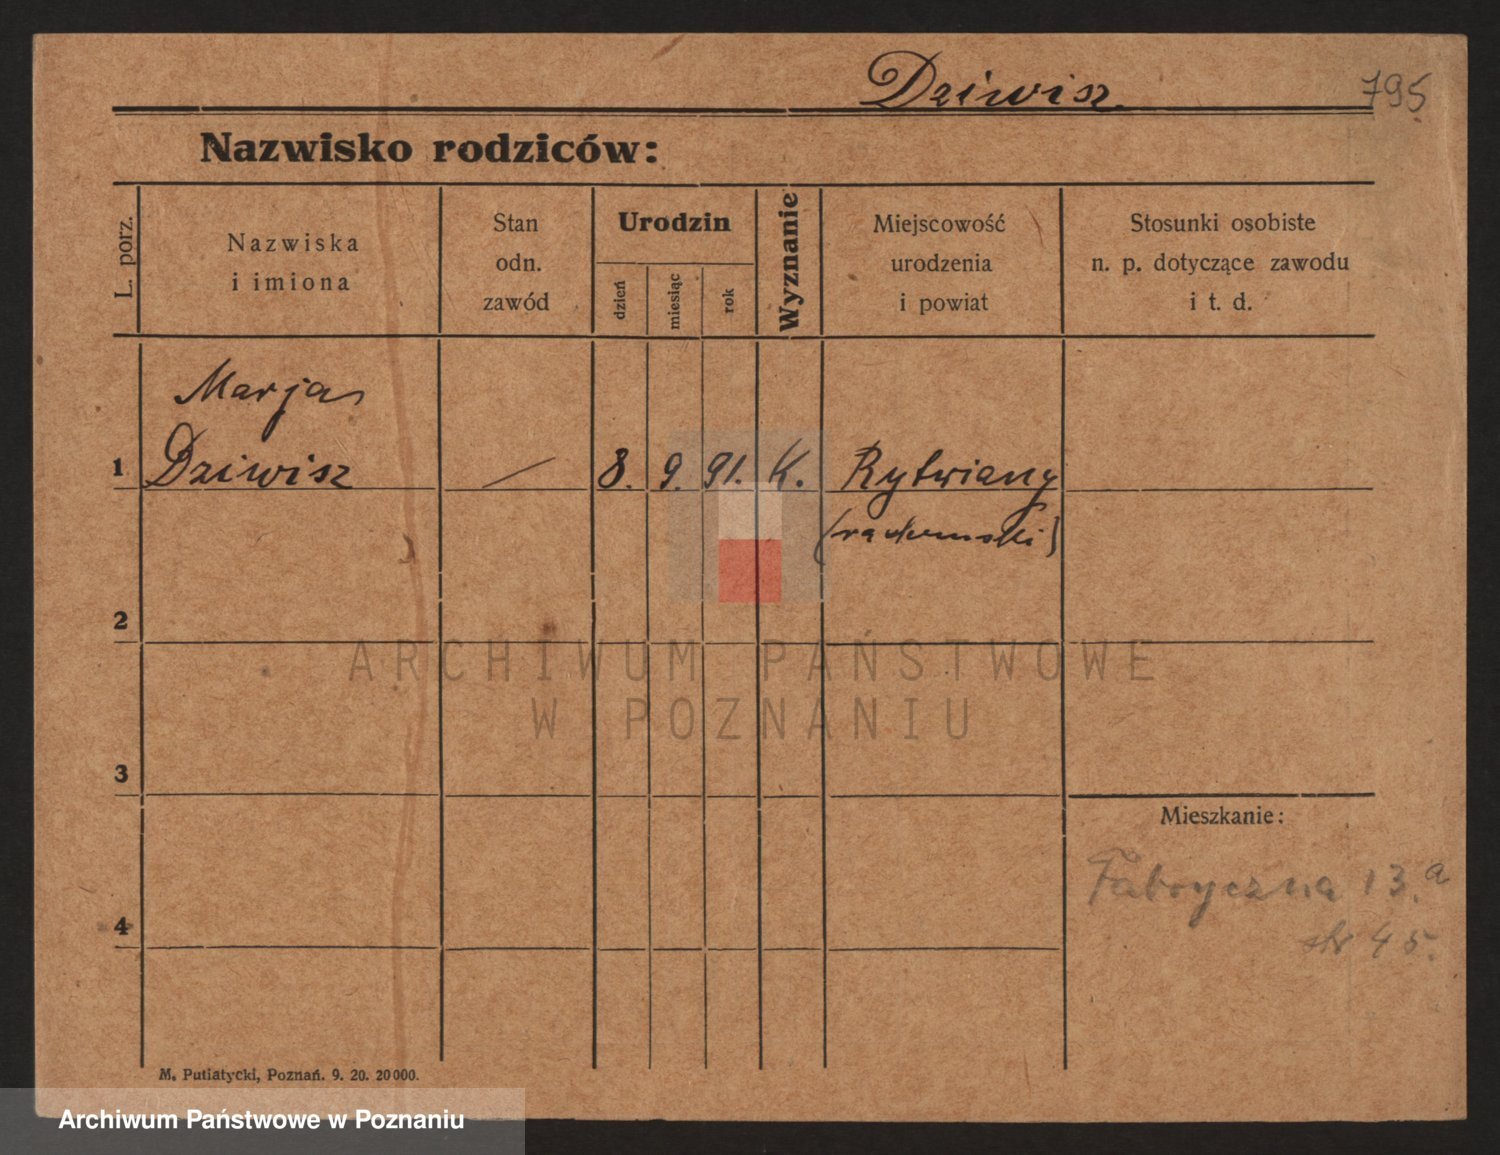 Dziwisz.
795
Nazwisko rodziców:
L. porz.
Nazwiska
i imiona
Stan
odn.
zawód
Urodzin
dzień
miesiąc
rok
Wyznanie
Miejscowość
urodzenia
i powiat
Stosunki osobiste
n. p. dotyczące zawodu
i t. d.
Marja
1 Dziwisz — 8. 9. 91. K. Rytwiany
(radomski)
2
ARCHIWUM PAŃSTWOWE
W POZNANIU
3
Mieszkanie:
Fabryczna 13.a
4
str 45.
M. Putiatycki, Poznań. 9. 20. 20000.
Archiwum Państwowe w Poznaniu